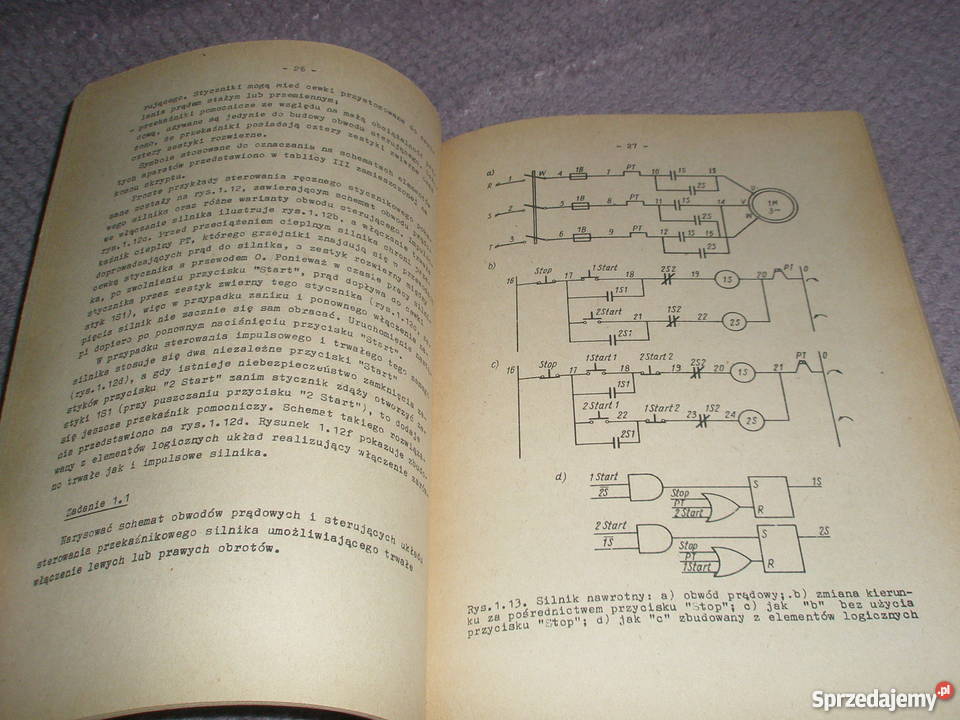 - 26 -
rującego. Styczniki mogą mieć cewki przystosowane do
lania prądem stałym lub przemiennym;
- przekaźniki pomocnicze ze względu na małą obciążalność
dową, używane są jedynie do budowy obwodu sterującego.
że przekaźniki posiadają cztery zestyki zwierne
cztery zestyki rozwierne.
Symbole stosowane do oznaczania na schematach elementów
tych aparatów przedstawiono w tablicy III zamieszczonej na
końcu skryptu.
Proste przykłady sterowania ręcznego stycznikowego
zane zostały na rys.1.12, zawierającym schemat obwodu
wego silnika oraz różne warianty obwodu sterującego.
we włączanie silnika ilustruje rys.1.12b, a włączanie
rys.1.12c. Przed przeciążeniem cieplnym silnika chroni
kaźnik cieplny PT, którego grzejniki znajdują się w
doprowadzających prąd do silnika, a zestyk rozwierny
cewkę stycznika a przewodem O. Ponieważ w czasie pracy
ka, po zwolnieniu przycisku "Start", prąd dopływa do cewki
stycznika przez zestyk zwierny tego stycznika (rys.1.12c,
styk 1S1), więc w przypadku zaniku i ponownego włączenia
pięcia silnik nie zacznie się sam obracać. Uruchomienie
pi dopiero po ponownym naciśnięciu przycisku "Start".
W przypadku sterowania impulsowego i trwałego tego samego
silnika stosuje się dwa niezależne przyciski "Start"
(rys.1.12d), a gdy istnieje niebezpieczeństwo zamknięcia
styków przycisku "2 Start" zanim stycznik zdąży otworzyć
styki 1S1 (przy puszczaniu przycisku "2 Start"), to dodaje
się jeszcze przekaźnik pomocniczy. Schemat takiego
nia przedstawiono na rys.1.12d. Rysunek 1.12f pokazuje
wany z elementów logicznych układ realizujący włączenie
no trwałe jak i impulsowe silnika.
Zadanie 1.1
Narysować schemat obwodów prądowych i sterujących układu
sterowania przekaźnikowego silnika umożliwiającego trwałe
włączenie lewych lub prawych obrotów.
- 27 -
a)
R 1 W 4 1B 7 PT 10 1S 13 U
2S
S 2 5 1B 8 PT 11 1S 14 V 1M 3~
2S
T 3 6 1B 9 PT 12 1S 15 W
2S
b)
16 Stop 17 1Start 18 2S2 19 1S 20 PT 0
1S1
2Start 21 1S2 22 2S
2S1
c)
16 Stop 17 1Start 1 18 2Start 2 19 2S2 20 1S 21 PT 0
1S1
2Start 1 22 1Start 2 23 1S2 24 2S
2S1
d)
1Start S 1S
2S Stop
PT
2Start R
2Start S 2S
1S Stop
PT
1Start R
Rys.1.13. Silnik nawrotny: a) obwód prądowy; b) zmiana kierun-
ku za pośrednictwem przycisku "Stop"; c) jak "b" bez użycia
przycisku "Stop"; d) jak "c" zbudowany z elementów logicznych
Sprzedajemy.pl